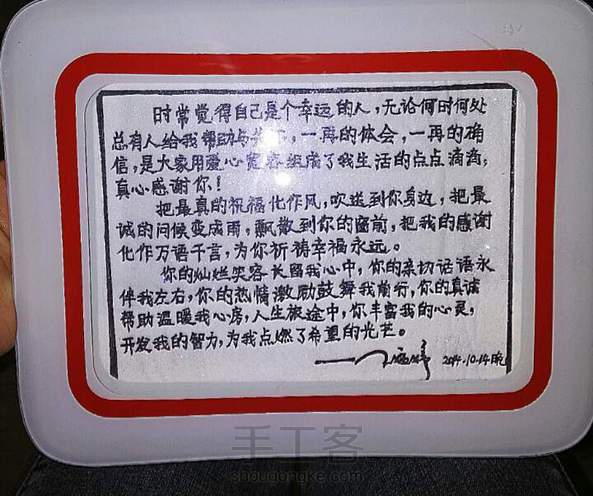 时常觉得自己是个幸运的人，无论何时何处
总有人给我帮助与
，一再的体会，一再的确
信，是大家用爱心宽容组成了我生活的点点滴滴，
真心感谢你！
把最真的祝福化作风，吹送到你身边，把最
诚的问候变成雨，飘散到你的窗前，把我的感谢
化作万语千言，为你祈祷幸福永远。
你的灿烂笑容长留我心中，你的亲切话语永
伴我左右，你的热情激励鼓舞我前行，你的真诚
帮助温暖我心房，人生旅途中，你丰富我的心灵，
开发我的智力，为我点燃了希望的光芒。
2014.10.14晚
手工客
shougongke.com